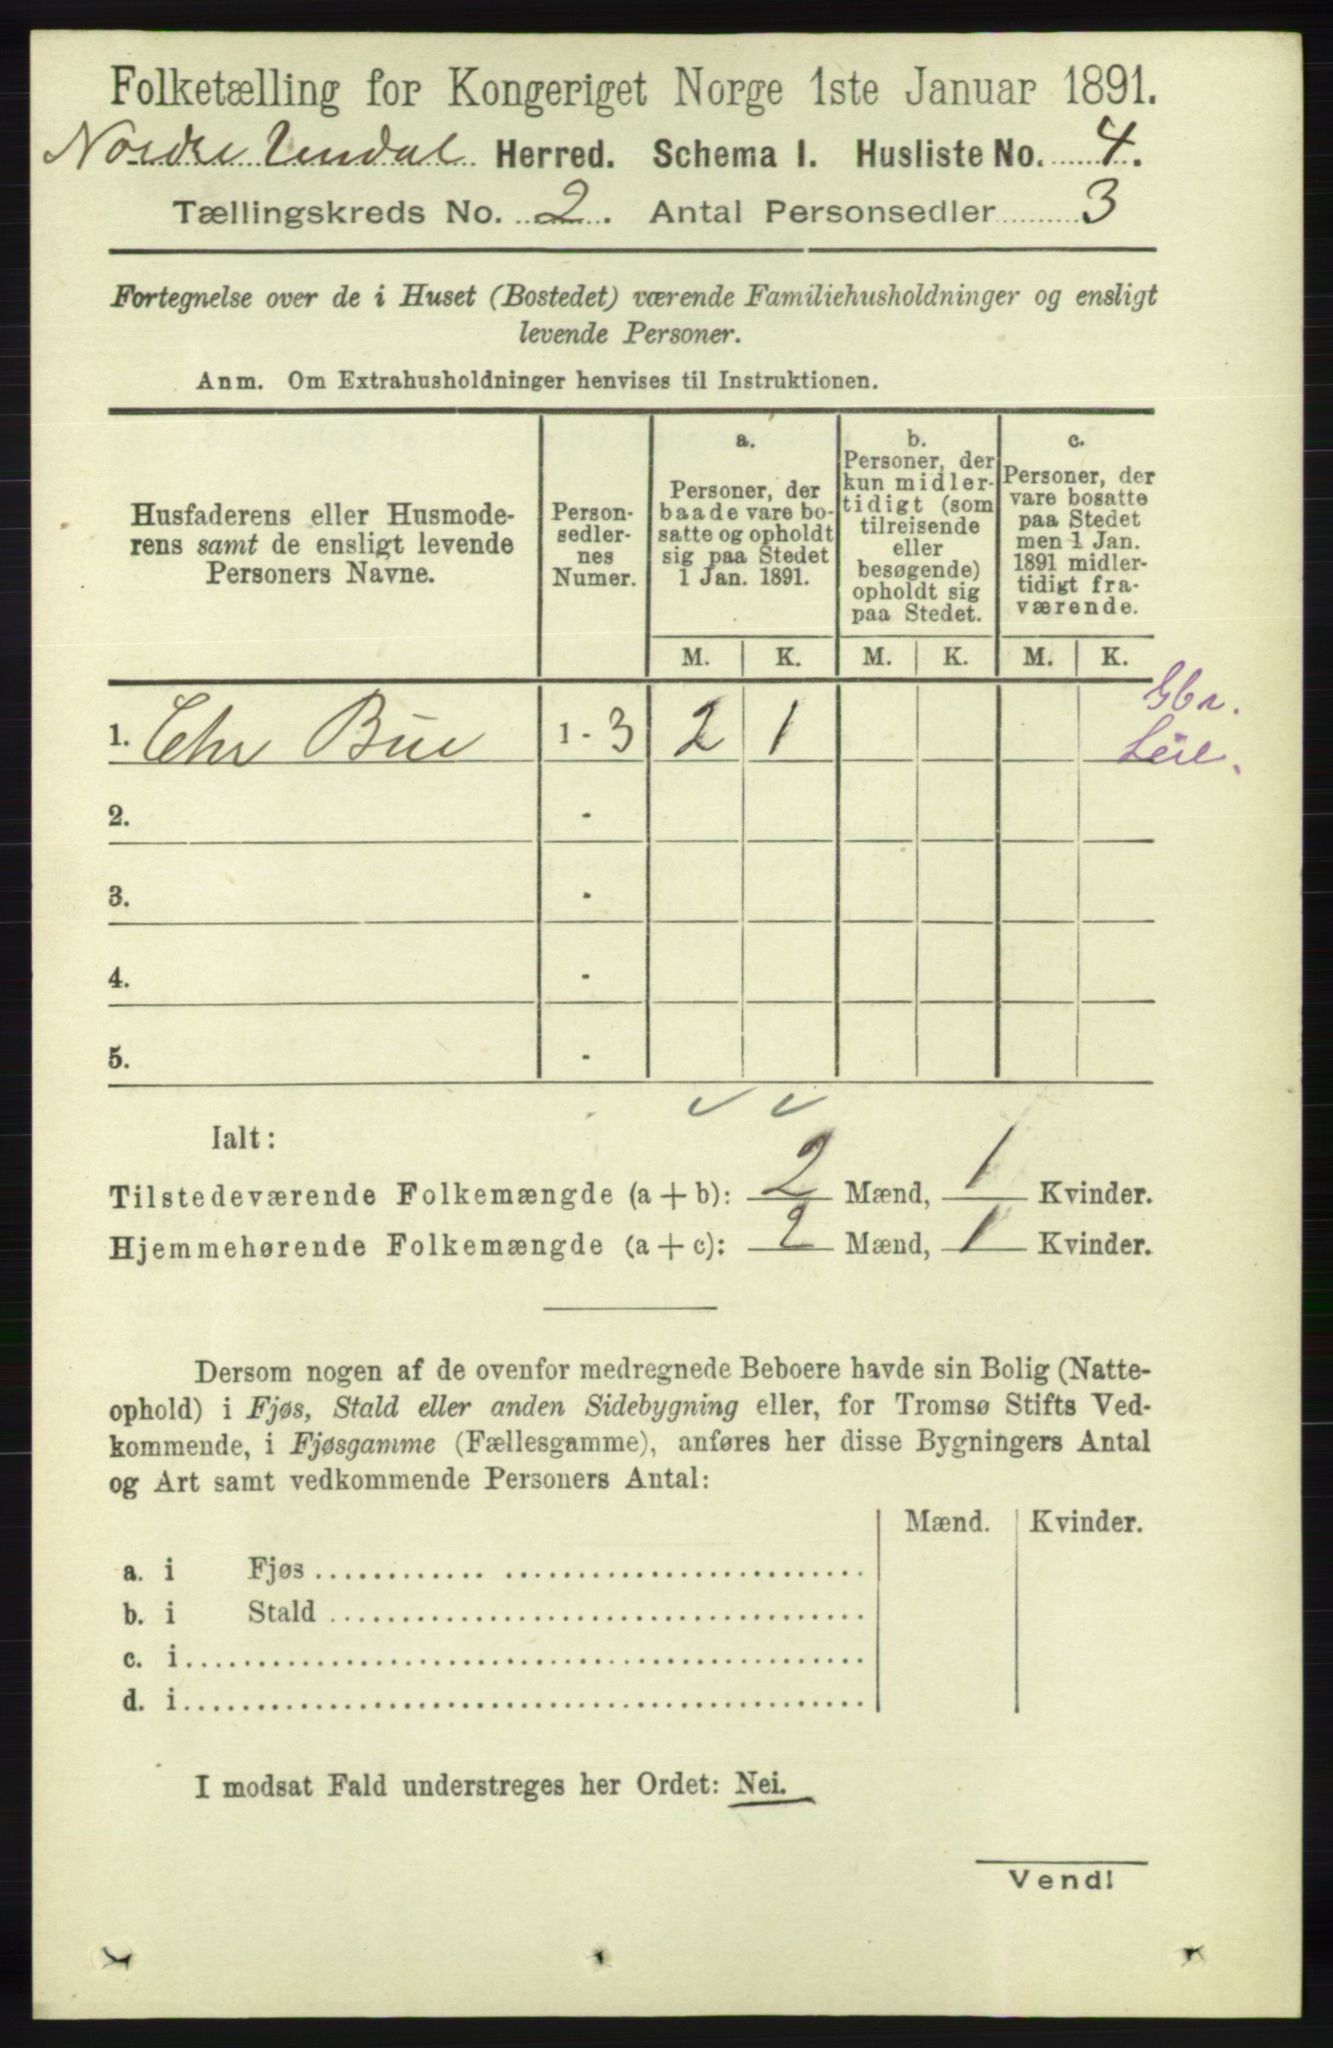 Folketælling for Kongeriget Norge 1ste Januar 1891.
Nordre Undal Herred. Schema I. Husliste No. 4.
Tællingskreds No. 2. Antal Personsedler 3
Fortegnelse over de i Huset (Bostedet) værende Familiehusholdninger og ensligt
levende Personer.
Anm. Om Extrahusholdninger henvises til Instruktionen.
Husfaderens eller Husmode-
rens samt de ensligt levende
Personers Navne.
Person-
sedler-
nes
Numer.
a.
Personer, der
baade vare bo-
satte og opholdt
sig paa Stedet
1 Jan. 1891.
b.
Personer, der
kun midler-
tidigt (som
tilreisende
eller
besøgende)
opholdt sig
paa Stedet.
c.
Personer, der
vare bosatte
paa Stedet
men 1 Jan.
1891 midler-
tidigt fra-
værende.
M. K. M. K. M. K.
Gbr.
1. Chr Bue 1 - 3 2 1
2. -
3. -
4. -
5. -
Ialt:
Tilstedeværende Folkemængde (a + b): 2 Mænd, 1 Kvinder.
Hjemmehørende Folkemængde (a + c): 2 Mænd, 1 Kvinder.
Dersom nogen af de ovenfor medregnede Beboere havde sin Bolig (Natte-
ophold) i Fjøs, Stald eller anden Sidebygning eller, for Tromsø Stifts Ved-
kommende, i Fjøsgamme (Fællesgamme), anføres her disse Bygningers Antal
og Art samt vedkommende Personers Antal:
Mænd. Kvinder.
a. i Fjøs
b. i Stald
c. i
d. i
I modsat Fald understreges her Ordet: Nei.
Vend!